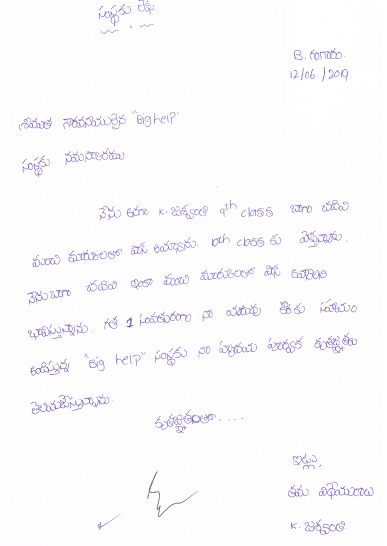 సంస్థకు లేఖ
B. గంగారం.
12/06/2019
శ్రీయుత గౌరవనీయులైన "Big help"
సంస్థకు నమస్కారము.
నేను అనగా K. జశ్వంతి 9th class బాగా చదివి
మంచి మార్కులతో పాస్ అయ్యాను. 10th class కు వెళ్తున్నాను.
నేను బాగా చదివి ఇంకా మంచి మార్కులతో పాస్ అవ్వాలని
భావిస్తున్నాను. గత 1 సంవత్సరంగా నా చదువు కొరకు సహాయం
చేస్తున్న "Big help" సంస్థకు నా హృదయ పూర్వక కృతజ్ఞతలు
తెలియజేస్తున్నాను.
కృతజ్ఞతలతో....
ఇట్లు,
తమ విధేయురాలు
K. జశ్వంతి.